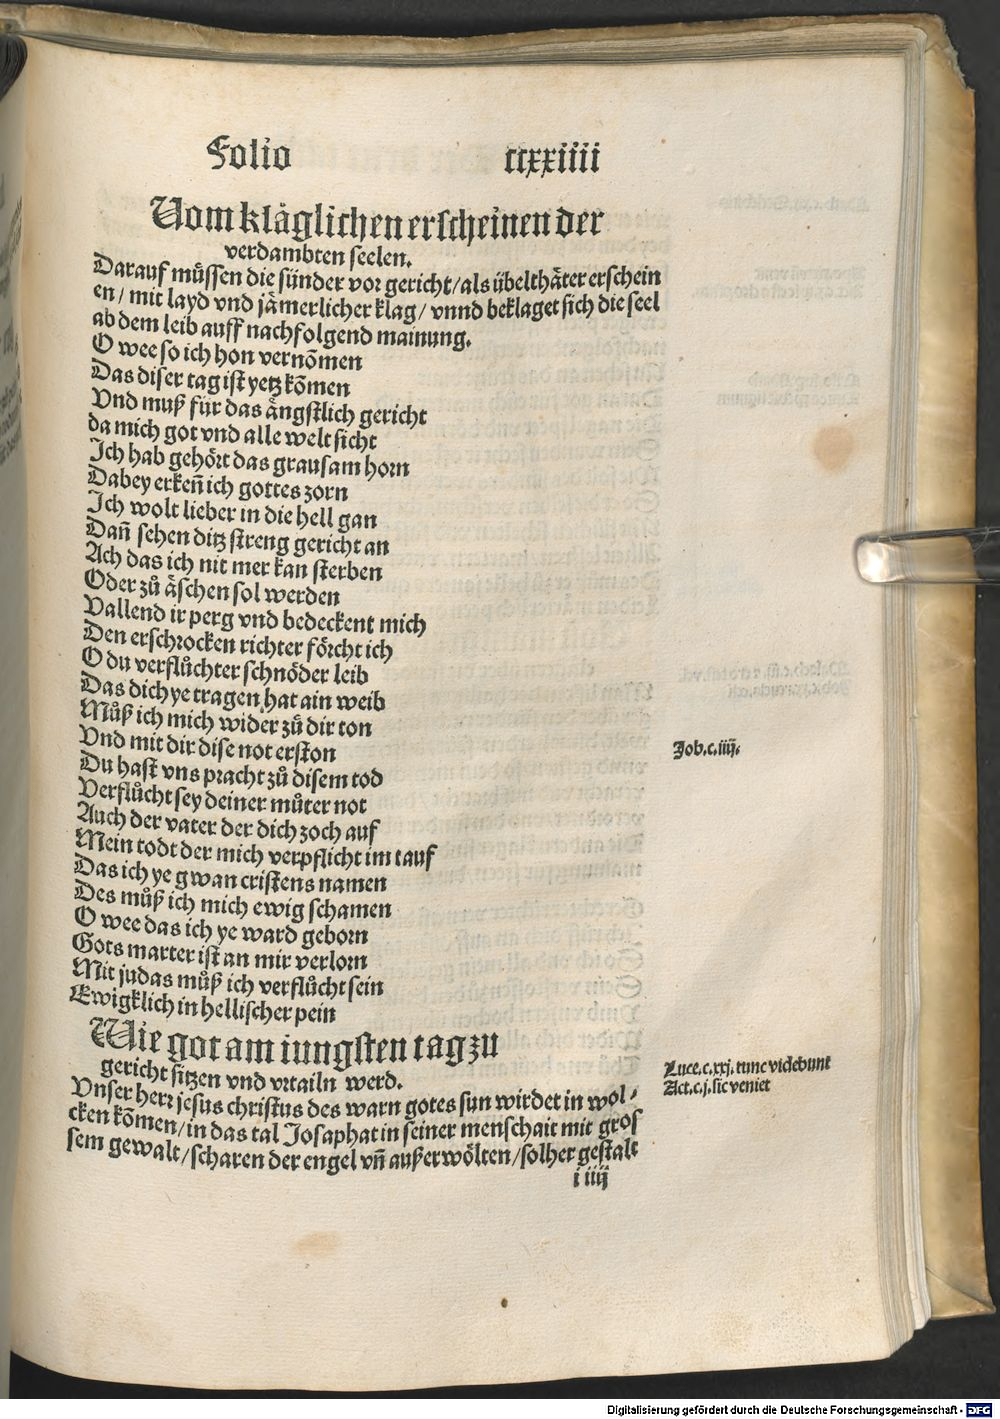 Folio ccxxiiii
Vom kläglichen erscheinen der
verdambten seelen.
Darauf müssen die sünder vor gericht/als übelthäter erschein
en/ mit layd vnd jämerlicher klag/ vnnd beklaget sich die seel
ab dem leib auff nachfolgend mainung.
O wee so ich hon vernōmen
Das diser tag ist yetz kōmen
Vnd muß für das ängstlich gericht
da mich got vnd alle welt sicht
Ich hab gehört das grausam horn
Dabey erken̄ ich gottes zorn
Ich wolt lieber in die hell gan
Dan̄ sehen ditz streng gericht an
Ach das ich nit mer kan sterben
Oder zů äschen sol werden
Vallend ir perg vnd bedeckent mich
Den erschrocken richter förcht ich
O du verflůchter schnöder leib
Das dich ye tragen hat ain weib
Můß ich mich wider zů dir ton
Vnd mit dir dise not erston
Du hast vns pracht zů disem tod
Job.c.iiij.
Verflůcht sey deiner můter not
Auch der vater der dich zoch auf
Mein todt der mich verpflicht im tauf
Das ich ye gwan cristens namen
Des můß ich mich ewig schamen
O wee das ich ye ward geborn
Gots marter ist an mir verlorn
Mit judas můß ich verflůcht sein
Ewigklich in hellischer pein
Wie got am iungsten tag zu
gericht sitzen vnd vrtailn werd.
Luce.c.xxj.tunc videbunt
Act.c.j.sic veniet
Vnser herr jesus christus des warn gotes sun wirdet in wol-
cken kōmen/in das tal Josaphat in seiner menschait mit gros
sem gewalt/scharen der engel vn̄ außerwölten/solher gestalt
i iiij
Digitalisierung gefördert durch die Deutsche Forschungsgemeinschaft - DFG